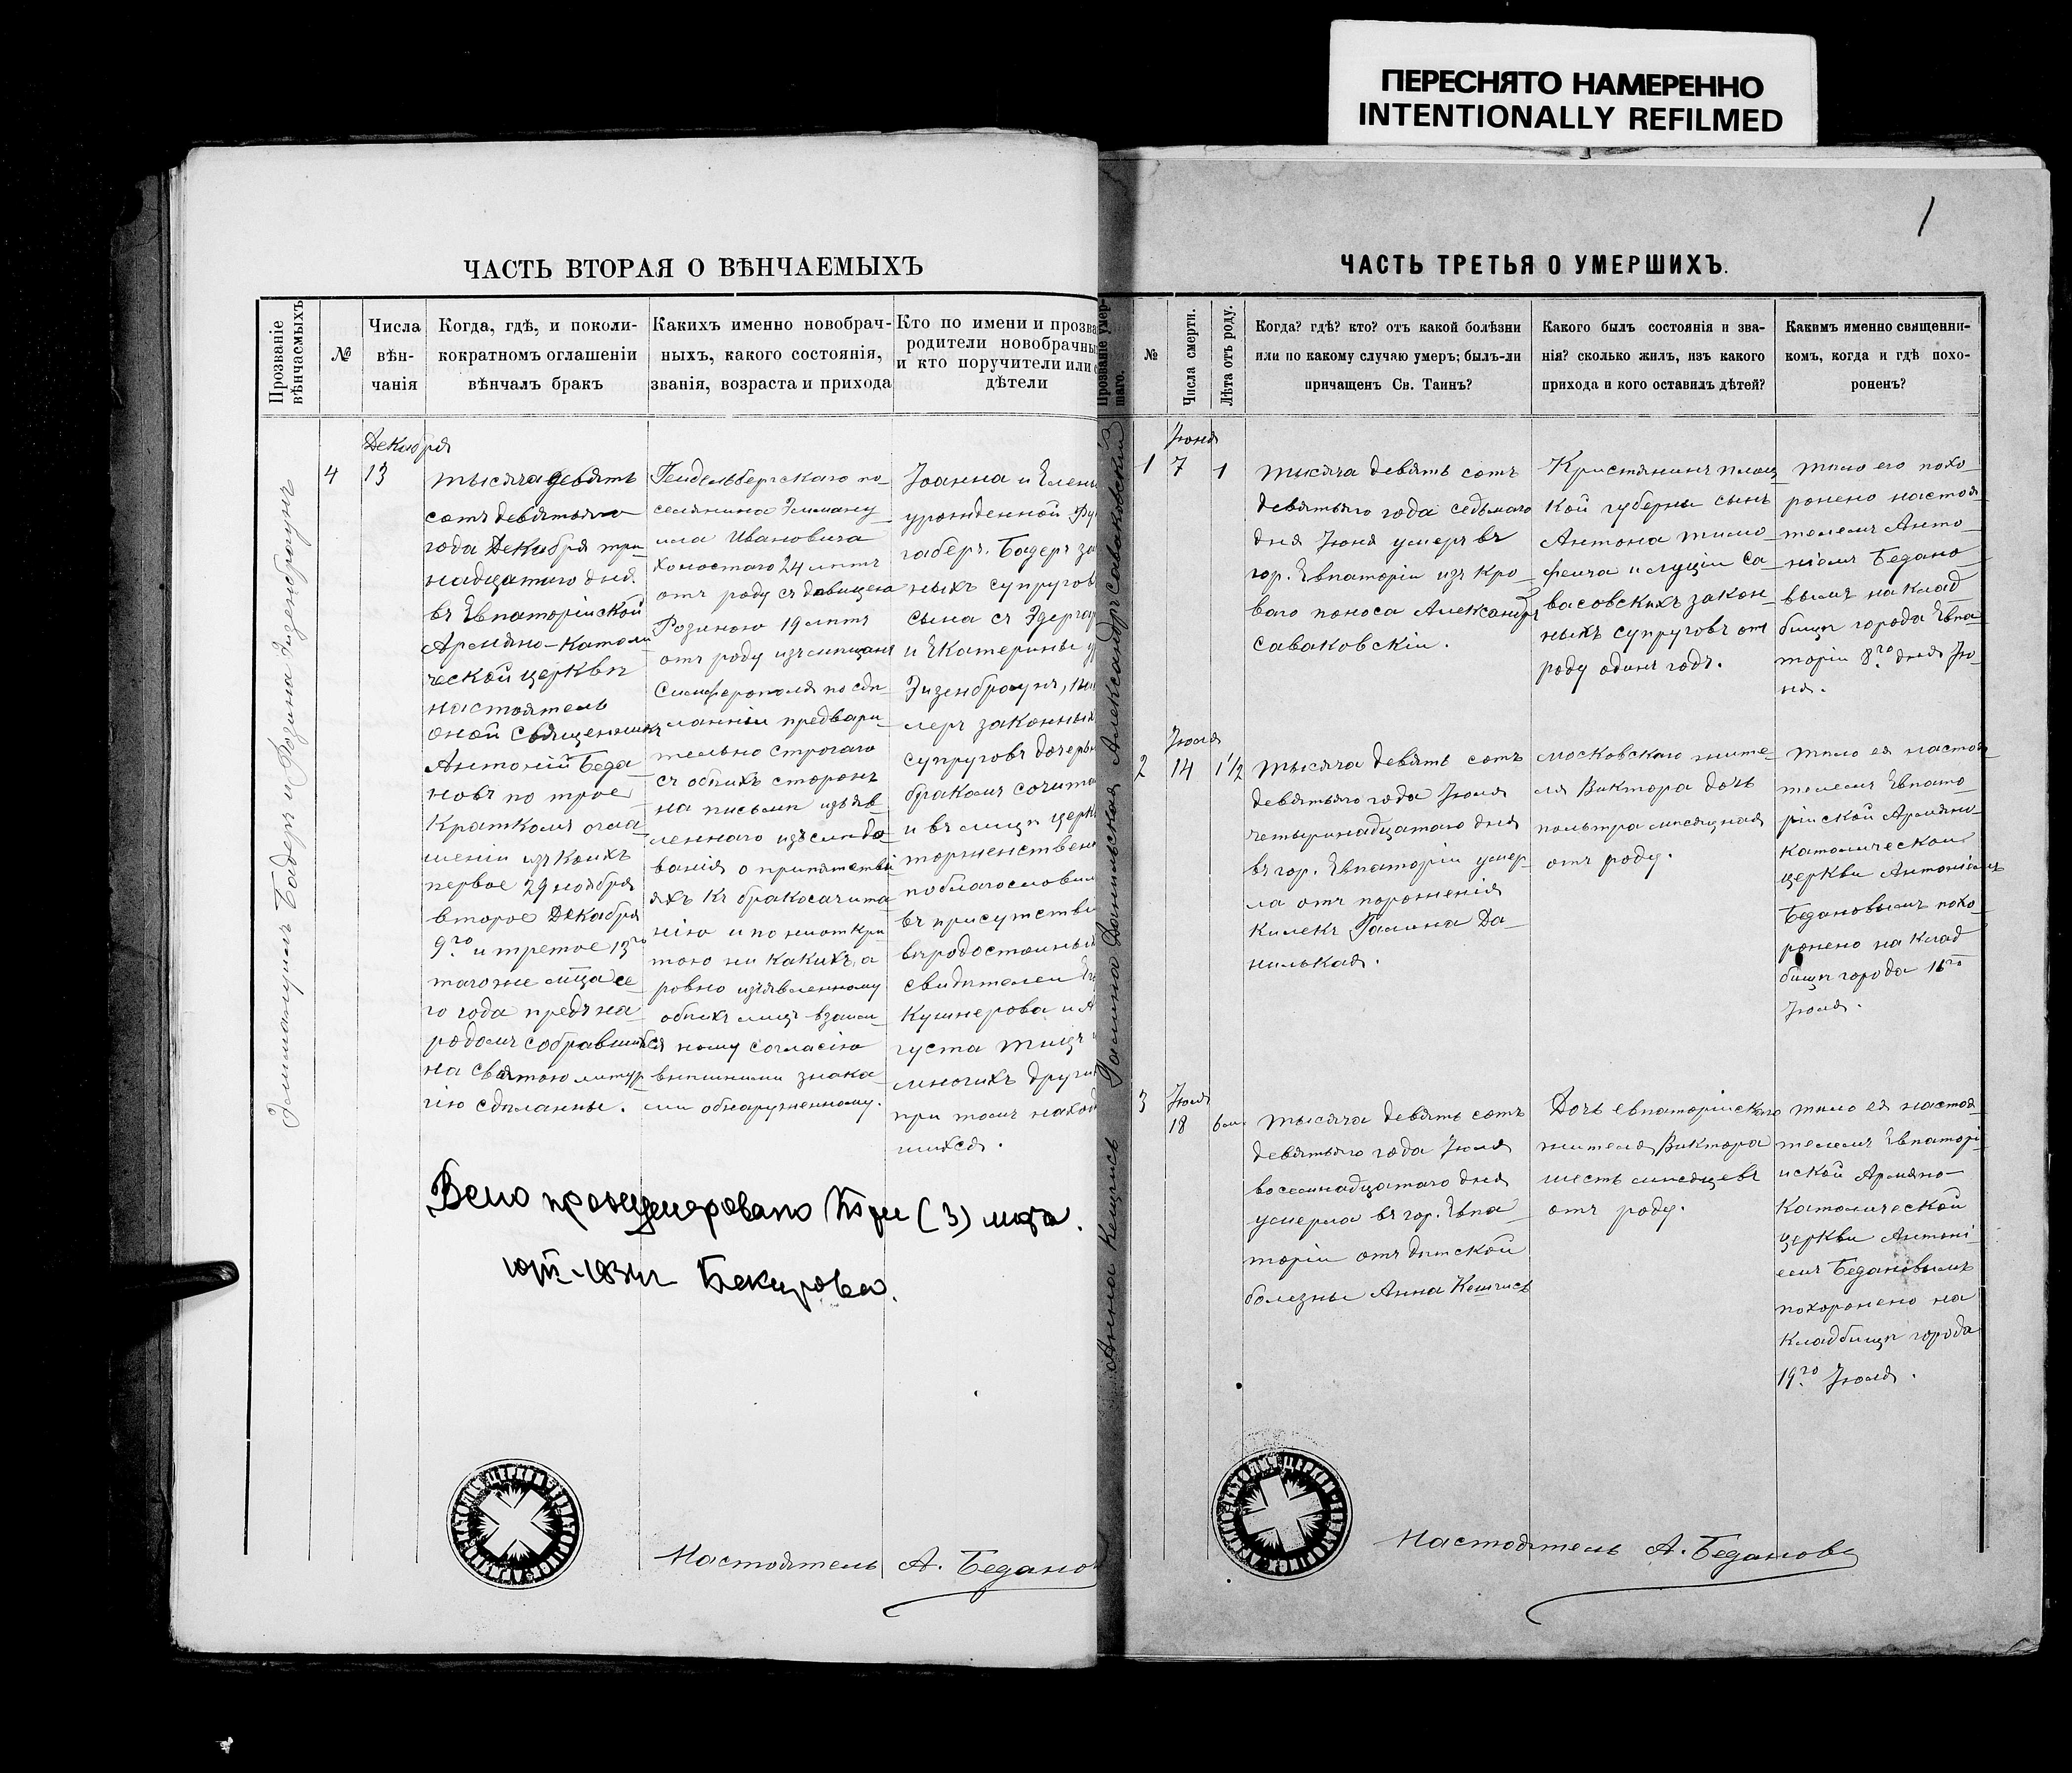 ПЕРЕСНЯТО НАМЕРЕННО
INTENTIONALLY REFILMED
1
ЧАСТЬ ВТОРАЯ О ВѢНЧАЕМЫХЪ
Прозваніе вѣнчаемыхъ
№
Числа
вѣн-
чанія
Когда, гдѣ, и поколи-
кократномъ оглашеніи
вѣнчалъ бракъ
Какихъ именно новобрач-
ныхъ, какого состоянія,
званія, возраста и прихода
Кто по имени и прозва
родители новобрачны
и кто поручители или с
дѣтели
Эммануилъ Бадеръ и Розина Эизенбраунъ
Декабря
4
13
тысяча девять
сотъ девятого
года Декабря три
надцатаго дня
въ Евпаторійской
Армяно-Католи
ческой церквѣ
настоятель
оной Священникъ
Антоній Беда
новъ по трое
Кратномъ огла
шеніи изъ коихъ
первое 29 ноября
второе Декабря
9го и третое 13го
тогоже мѣца се
го года предъ на
родомъ собравшимся
на Святою литур
гію сдѣланны.
Гейдельбергскаго по
селянина Эмману
ила Ивановича
холостаго 24 лѣтъ
отъ роду съ дѣвицею
Розиною 19 лѣтъ
отъ роду изъ мѣщанъ
Симферополя по сдѣ
ланнім предвари
тельно строгаго
съ обѣихъ сторонъ
на письмѣ изъяв
леннаго изъслѣдо
ванія о припятстві
яхъ къ бракосачита
нію и по неоткри
тою ни какихъ, а
ровно изъявленному
обѣихъ лицъ взаим
ному согласію
внѣшними знака
ми обнаруженному.
Іоанна и Елены
урожденной Фу
габеръ. Бадеръ за
ныхъ супруговъ
сына съ Эдергар
и Екатерины у
Эизенбраунъ,
леръ законных
супруговъ дочерью
бракомъ сочита
и въ лицѣ церк
торженствен
поблагословил
въ присутстви
вѣродостойных
свидѣтелей
Кушнерова и А
густа Тицъ
многихъ други
при томъ наход
шихся.
три (3) акта.
1934г Бекирова.
Настоятель А. Беданов
ЧАСТЬ ТРЕТЬЯ О УМЕРШИХЪ.
Прозваніе умер-
шаго.
№
Числа смерти.
Лѣта отъ роду.
Когда? гдѣ? кто? отъ какой болѣзни
или по какому случаю умеръ; былъ-ли
причащенъ Св. Таинъ?
Какого былъ состоянія и зва-
нія? сколько жилъ, изъ какого
прихода и кого оставилъ дѣтей?
Какимъ именно священни-
комъ, когда и гдѣ похо-
роненъ?
Александръ Саваковскій
Іюня
1
7
1
тысяча девять сотъ
девятьяго года седьмаго
дня Іюня умеръ въ
гор. Евпаторіи изъ кро
ваго поноса Александръ
Саваковскій.
Кристянинъ
кой губерны сынъ
Антона Тимо
феича и Луціи Са
васовскихъ закон
ныхъ супруговъ отъ
роду одинъ годъ.
тѣло его похо
ронено настоя
телемъ Анто
ніомъ Бедано
вымъ на клад
бищѣ города Евпа
торіи 8го дня Ію
ня.
Галина Данилькая
Іюля
2
14
1 1/2
тысяча девять сотъ
девятьяго года Іюля
четырнадцатаго дня
въ гор. Евпаторіи умер
ла отъ пороженія
килекъ Галина Да
нилькая.
московскаго жите
ля Виктора дочь
польтра мѣсяцная
отъ роду.
тѣло ея настоя
телемъ Евпато
рійской Армяно
католической
церкви Антоніемъ
Бедановымъ похо
ронено на клад
бищѣ города 16го
Іюля.
Анна Кешчисъ
3
Іюля
18
6 м.
тысяча девять сотъ
девятьяго года Іюля
восемнадцатаго дня
умерла въ гор. Евпа
торіи отъ дѣтской
болезны Анна Кешчисъ
Дочь евпаторійскаго
жителя Виктора
шесть мѣсяцевъ
отъ роду.
тѣло ея настоя
телемъ Евпаторі
йской Армяно
Католической
церкви Антоні
емъ Бедановымъ
похоронено на
кладбищѣ города
19го Іюля.
Настоятель А. Бедановъ